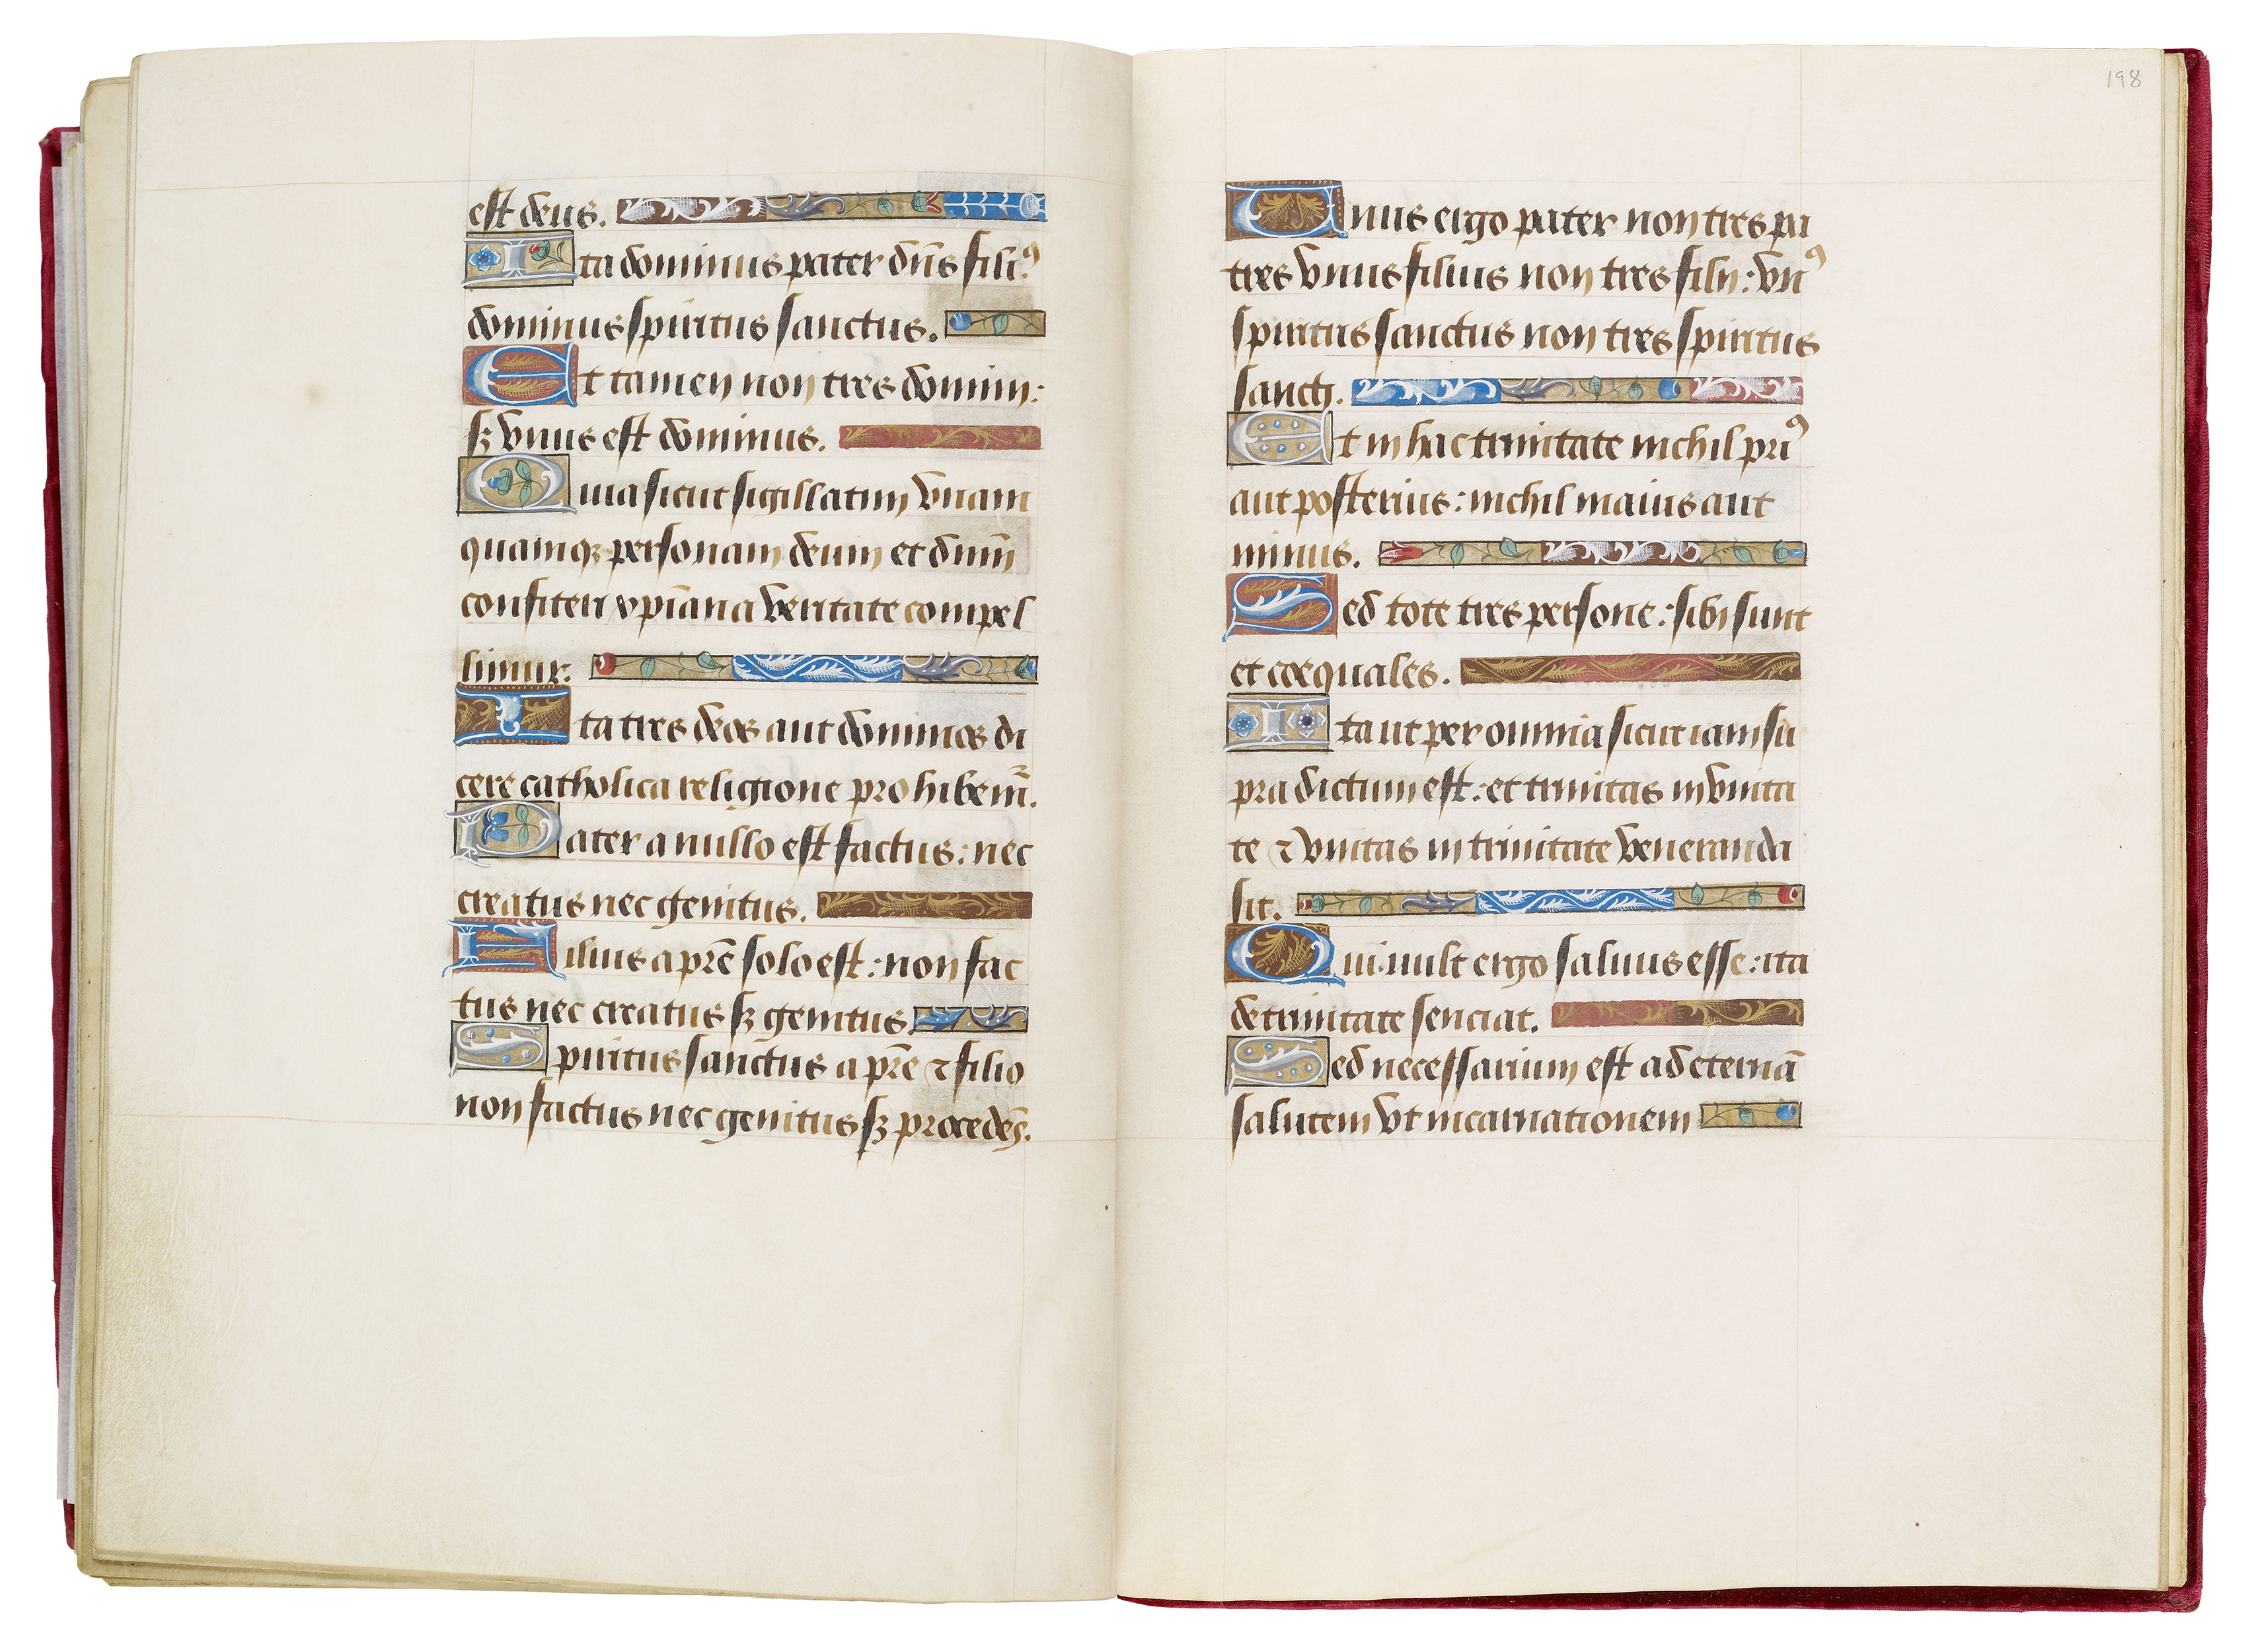 est deus.
Ita dominus pater dn̄s filiꝰ
dominus spiritus sanctus.
Et tamen non tres domini:
sꝫ vnus est dominus.
Quia sicut sigillatim vnam
quamqꝫ personam deum et dn̄m
confiteri xp̄iana veritate compel
limur.
Ita tres deos aut dominos di
cere catholica religione prohibem̄.
Pater a nullo est factus: nec
creatus nec genitus.
Filius a pr̄e solo est: non fac
tus nec creatus sꝫ genitus.
Spiritus sanctus a pr̄e ⁊ filio
non factus nec genitus sꝫ procedēs.
198
Unus ergo pater non tres pa
tres vnus filius non tres filij: vnꝰ
spiritus sanctus non tres spiritus
sancti.
Et in hac trinitate nichil priꝰ
aut posterius: nichil maius aut
minus.
Sed tote tres persone: sibi sunt
et coequales.
Ita ut per omnia sicut iam su
pra dictum est: et trinitas in vnita
te ⁊ vnitas in trinitate veneranda
sit.
Qui uult ergo saluus esse: ita
de trinitate senciat.
Sed necessarium est ad eternā
salutem vt incarnationem